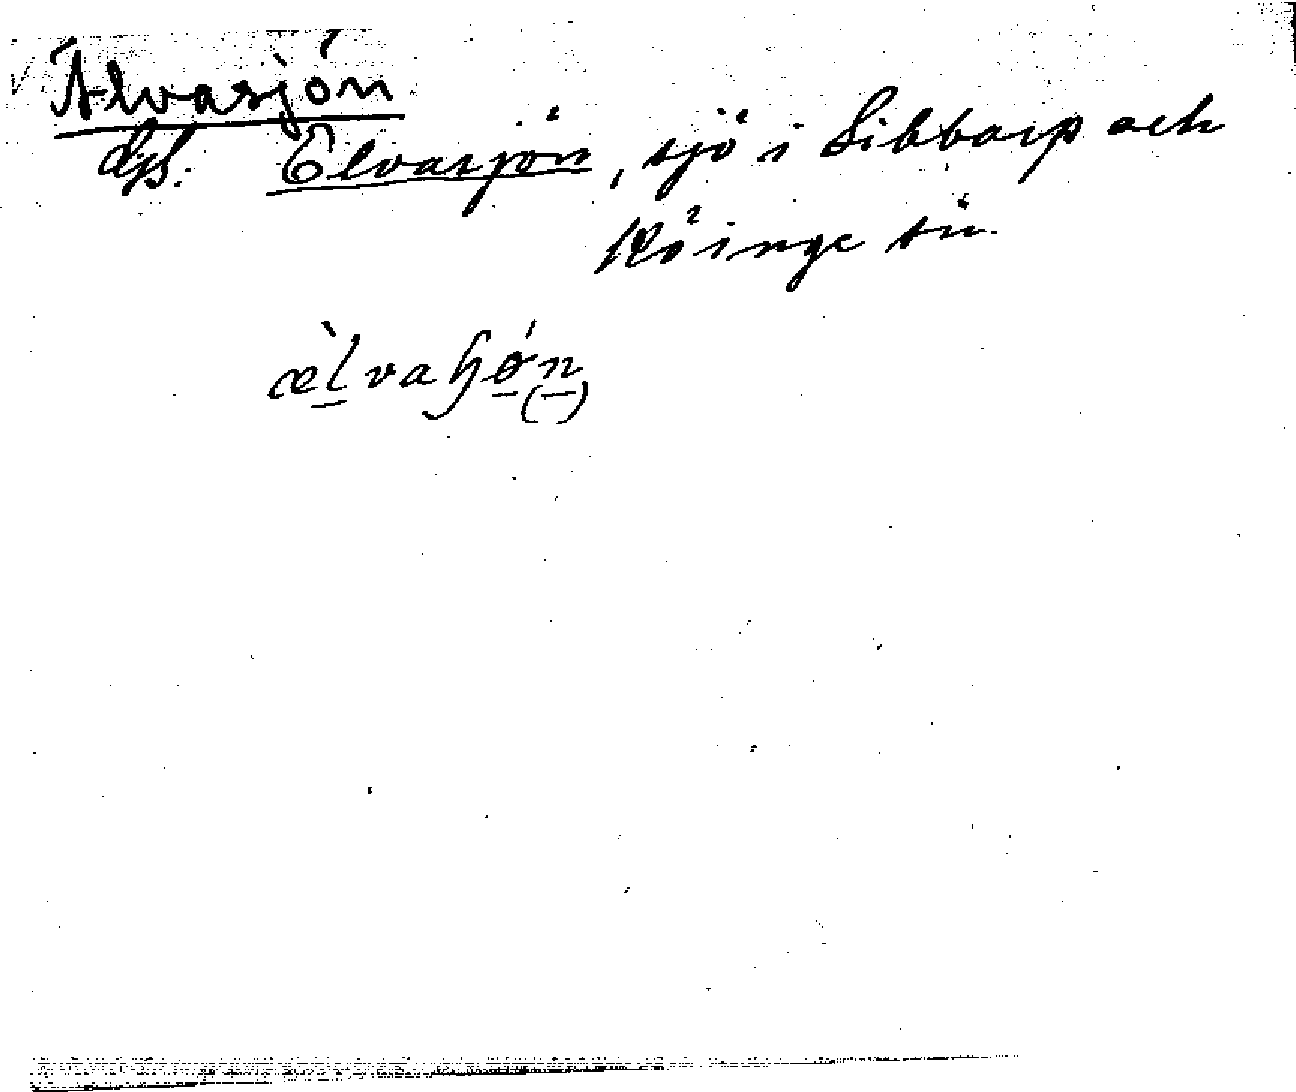 Älvasjön
Elvasjön, sjö i Sibbarp och
Köinge sn.
æ̀lvaɧǿn